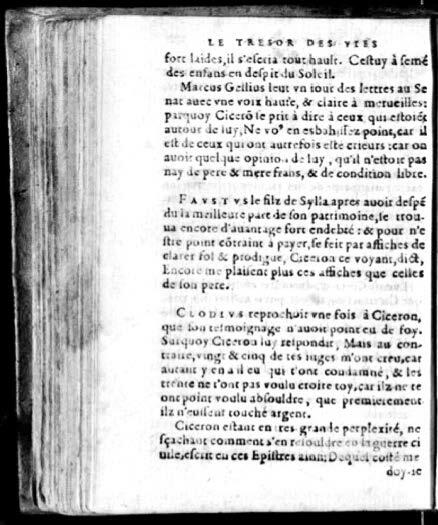 LE TRESOR DES VIES
fort laides, il s'escria tout hault. Cestuy à semé
des enfans en despit du Soleil.
Marcus Gellius leut vn iour des lettres au Se
nat auec vne voix haute, & claire à merueilles:
parquoy Cicerõ se prit à dire à ceux qui estoiẽt
autour de luy, Ne vo⁹ en esbahissez point, car il
est de ceux qui ont autrefois esté crieurs: car on
auoit quelque opinion de luy, qu'il n'estoit pas
nay de pere & mere frans, & de condition libre.
FAVSTVS le filz de Sylla apres auoir despẽ
du la meilleure part de son patrimoine, se trou-
ua encore d'auantage fort endebté: & pour n'e
stre point cõtraint à payer, se feit par affiches de
clarer fol & prodigue, Ciceron ce voyant, dict,
Encore me plaisent plus ces affiches que celles
de son pere.
CLODIVS reprochoit vne fois à Ciceron,
que son tesmoignage n'auoit point eu de foy.
Surquoy Ciceron luy respondit, Mais au con-
traire, vingt & cinq de tes iuges m'ont creu, car
autant y en a il eu qui t'ont condamné, & les
trente ne t'ont pas voulu croire toy, car ilz ne te
ont point voulu absouldre, que premierement
ilz n'eussent touché argent.
Ciceron estant en tres grande perplexité, ne
sçachant comment s'en resouldre en la guerre ci
uile, escrit en ces Epistres ainsi: Dequel costé me
doy-ie